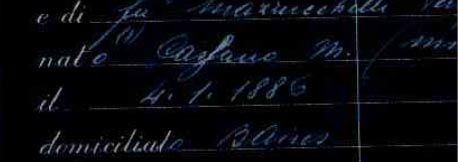 e di fu Mazzucchelli
nato (1) Cassano M. (
il 4. 1. 1886
domiciliato BAires